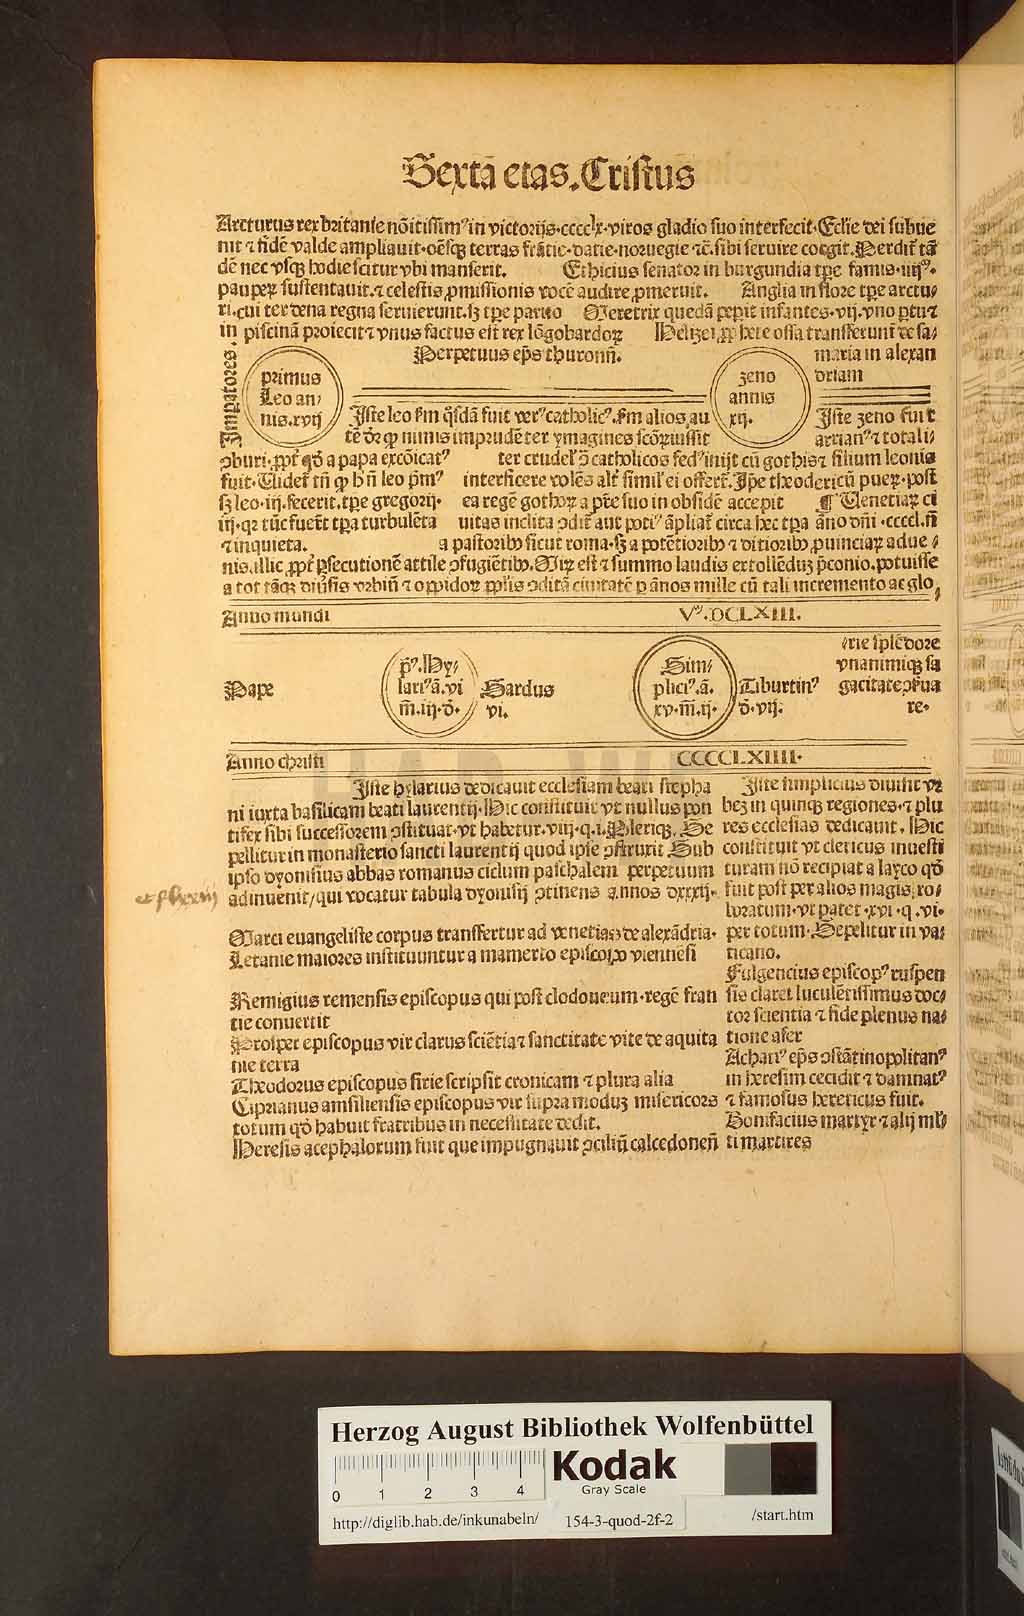 Sextā etas. Cristus
Arcturus rex britanie nōitissimꝰ in victorijs·cccclx·viros gladio suo interfecit·Ecl'ie dei subue
nit ⁊ fidē valde ampliauit·oēsqꝫ terras frācie·dacie·noruegie ⁊c̄.sibi seruire coegit.Perdit' tā
dē nec vsqꝫ hodie scitur vbi manserit. Ethicius senator in burgundia tp̄e famis·iiijᵒʳ·
pauperꝝ sustentauit.⁊ celestis ꝓmissionis vocē audire ꝓmeruit. Anglia in flore tp̄e arctu⸗
ri.cui ter dena regna seruierunt.sꝫ tp̄e paruo Meretrix quedā pepit infantes·vij·vno ꝑtu ⁊
in piscinā proiecit ⁊ vnus factus est rex lōgobardoꝝ Helizei ꝓphete ossa transferunt' de sa⸗
maria in alexan
driam
Perpetuus ep̄s thuronn̄.
Imꝑatores.
primus
Leo an⸗
nis.xvij
zeno
annis
xij.
Iste leo ṗm qͥsdā fuit verꝰ catholicꝰ.ṗm alios au
tē dꝛ ꝙ nimis imprudēter ymagines scōꝝ iussit
ↄburi·ꝓpt' qd̄ a papa excōicatꝰ
fuit·Videt' tn̄ ꝙ h̄ n̄ leo pm̄ꝰ
sꝫ leo·iij.fecerit.tp̄e gregorij·
iij·qꝛ tūc fuer̄t tp̄a turbulēta
⁊ inquieta.
Iste zeno fuit
arrianꝰ ⁊ totali⸗
ter crudel' ↄ̄ catholicos fedꝰ inijt cū gothis ⁊ filium leonis
interficere volēs alt' simil' ei offert'.Ip̄e theodericū pueꝝ·post
ea regē gothoꝝ a pr̄e suo in obsidē accepit ¶ Venetiaꝝ ci
uitas inclita ↄdit' aut potiꝰ āpliat' circa hec tp̄a āno dn̄i·ccccl.n̄
a pastoribꝰ sicut roma·sꝫ a potētioribꝰ ⁊ ditioribꝰ ꝓuinciaꝝ adue⸗
nis.illic ꝓpt' ꝑsecutionē attile ↄfugiētibꝰ.Miꝝ est ⁊ summo laudis extollēduꝫ p̄conio.potuisse
a tot tāqꝫ diuersis vrbiū ⁊ oppidoꝝ ppl'is ↄditā ciuitatē ꝑ ānos mille cū tali incremento ac glo⸗
Anno mundi Vᵐ·DCLXIII.
⸗rie splēdore
vnanimiqꝫ sa
gacitate ꝑseua
re·
Pape
pͥꝰ.Hy⸗
lariꝰ ā.vi
m̄.iij·d̄·
Sardus
vi.
Sim⸗
pliciꝰ.ā.
xv·m̄.ij·
Tiburtinꝰ
d̄·vij·
Anno christi CCCCLXIIII·
Iste hylarius dedicauit ecclesiam beati stepha
ni iuxta basilicam beati laurentij·Hic constituit vt nullus pon
tifex sibi successorem ↄstituat·vt habetur·viij·q.i.Pleriqꝫ. Se
pellitur in monasterio sancti laurentij quod ipse ↄstruxit Sub
ipso dyonisius abbas romanus ciclum paschalem perpetuum
adinuenit/qui vocatur tabula dyonisij ↄtinens annos dxxxij·
Marci euangeliste corpus transfertur ad venetias de alexādria·
Letanie maiores instituuntur a mamerto episcopo viennēsi
Remigius remensis episcopus qui post clodoueum·regē fran
cie conuertit
Prosper episcopus vir clarus sciētia ⁊ sanctitate vite de aquita
nie terra
Theodorus episcopus sirie scripsit cronicam ⁊ plura alia
Ciprianus amsiliensis episcopus vir supra moduꝫ misericors
totum qd̄ habuit fratribus in necessitate dedit.
Heresis acephalorum fuit que impugnauit ↄciliū calcedonen̄
Iste simplicius diuisit vr
beꝫ in quinqꝫ regiones·⁊ plu
res ecclesias dedicauit. Hic
constituit vt clericus inuesti
turam nō recipiat a layco qd̄
fuit post per alios magis ro⸗
boratum·vt patet·xvi·q·vi·
per totum·Sepelitur in va⸗
ticano.
Fulgencius episcopꝰ ruspen
sis claret luculētissimus doc⸗
tor scientia ⁊ fide plenus na⸗
tione afer
Achatiꝰ ep̄s ↄstātinopolitanꝰ
in heresim cecidit ⁊ damnatꝰ
⁊ famosus hereticus fuit.
Bonifacius martyr ⁊ alij ml'
ti martires
Herzog August Bibliothek Wolfenbüttel
0 1 2 3 4
Kodak
Gray Scale
http://diglib.hab.de/inkunabeln/ 154-3-quod-2f-2 /start.htm